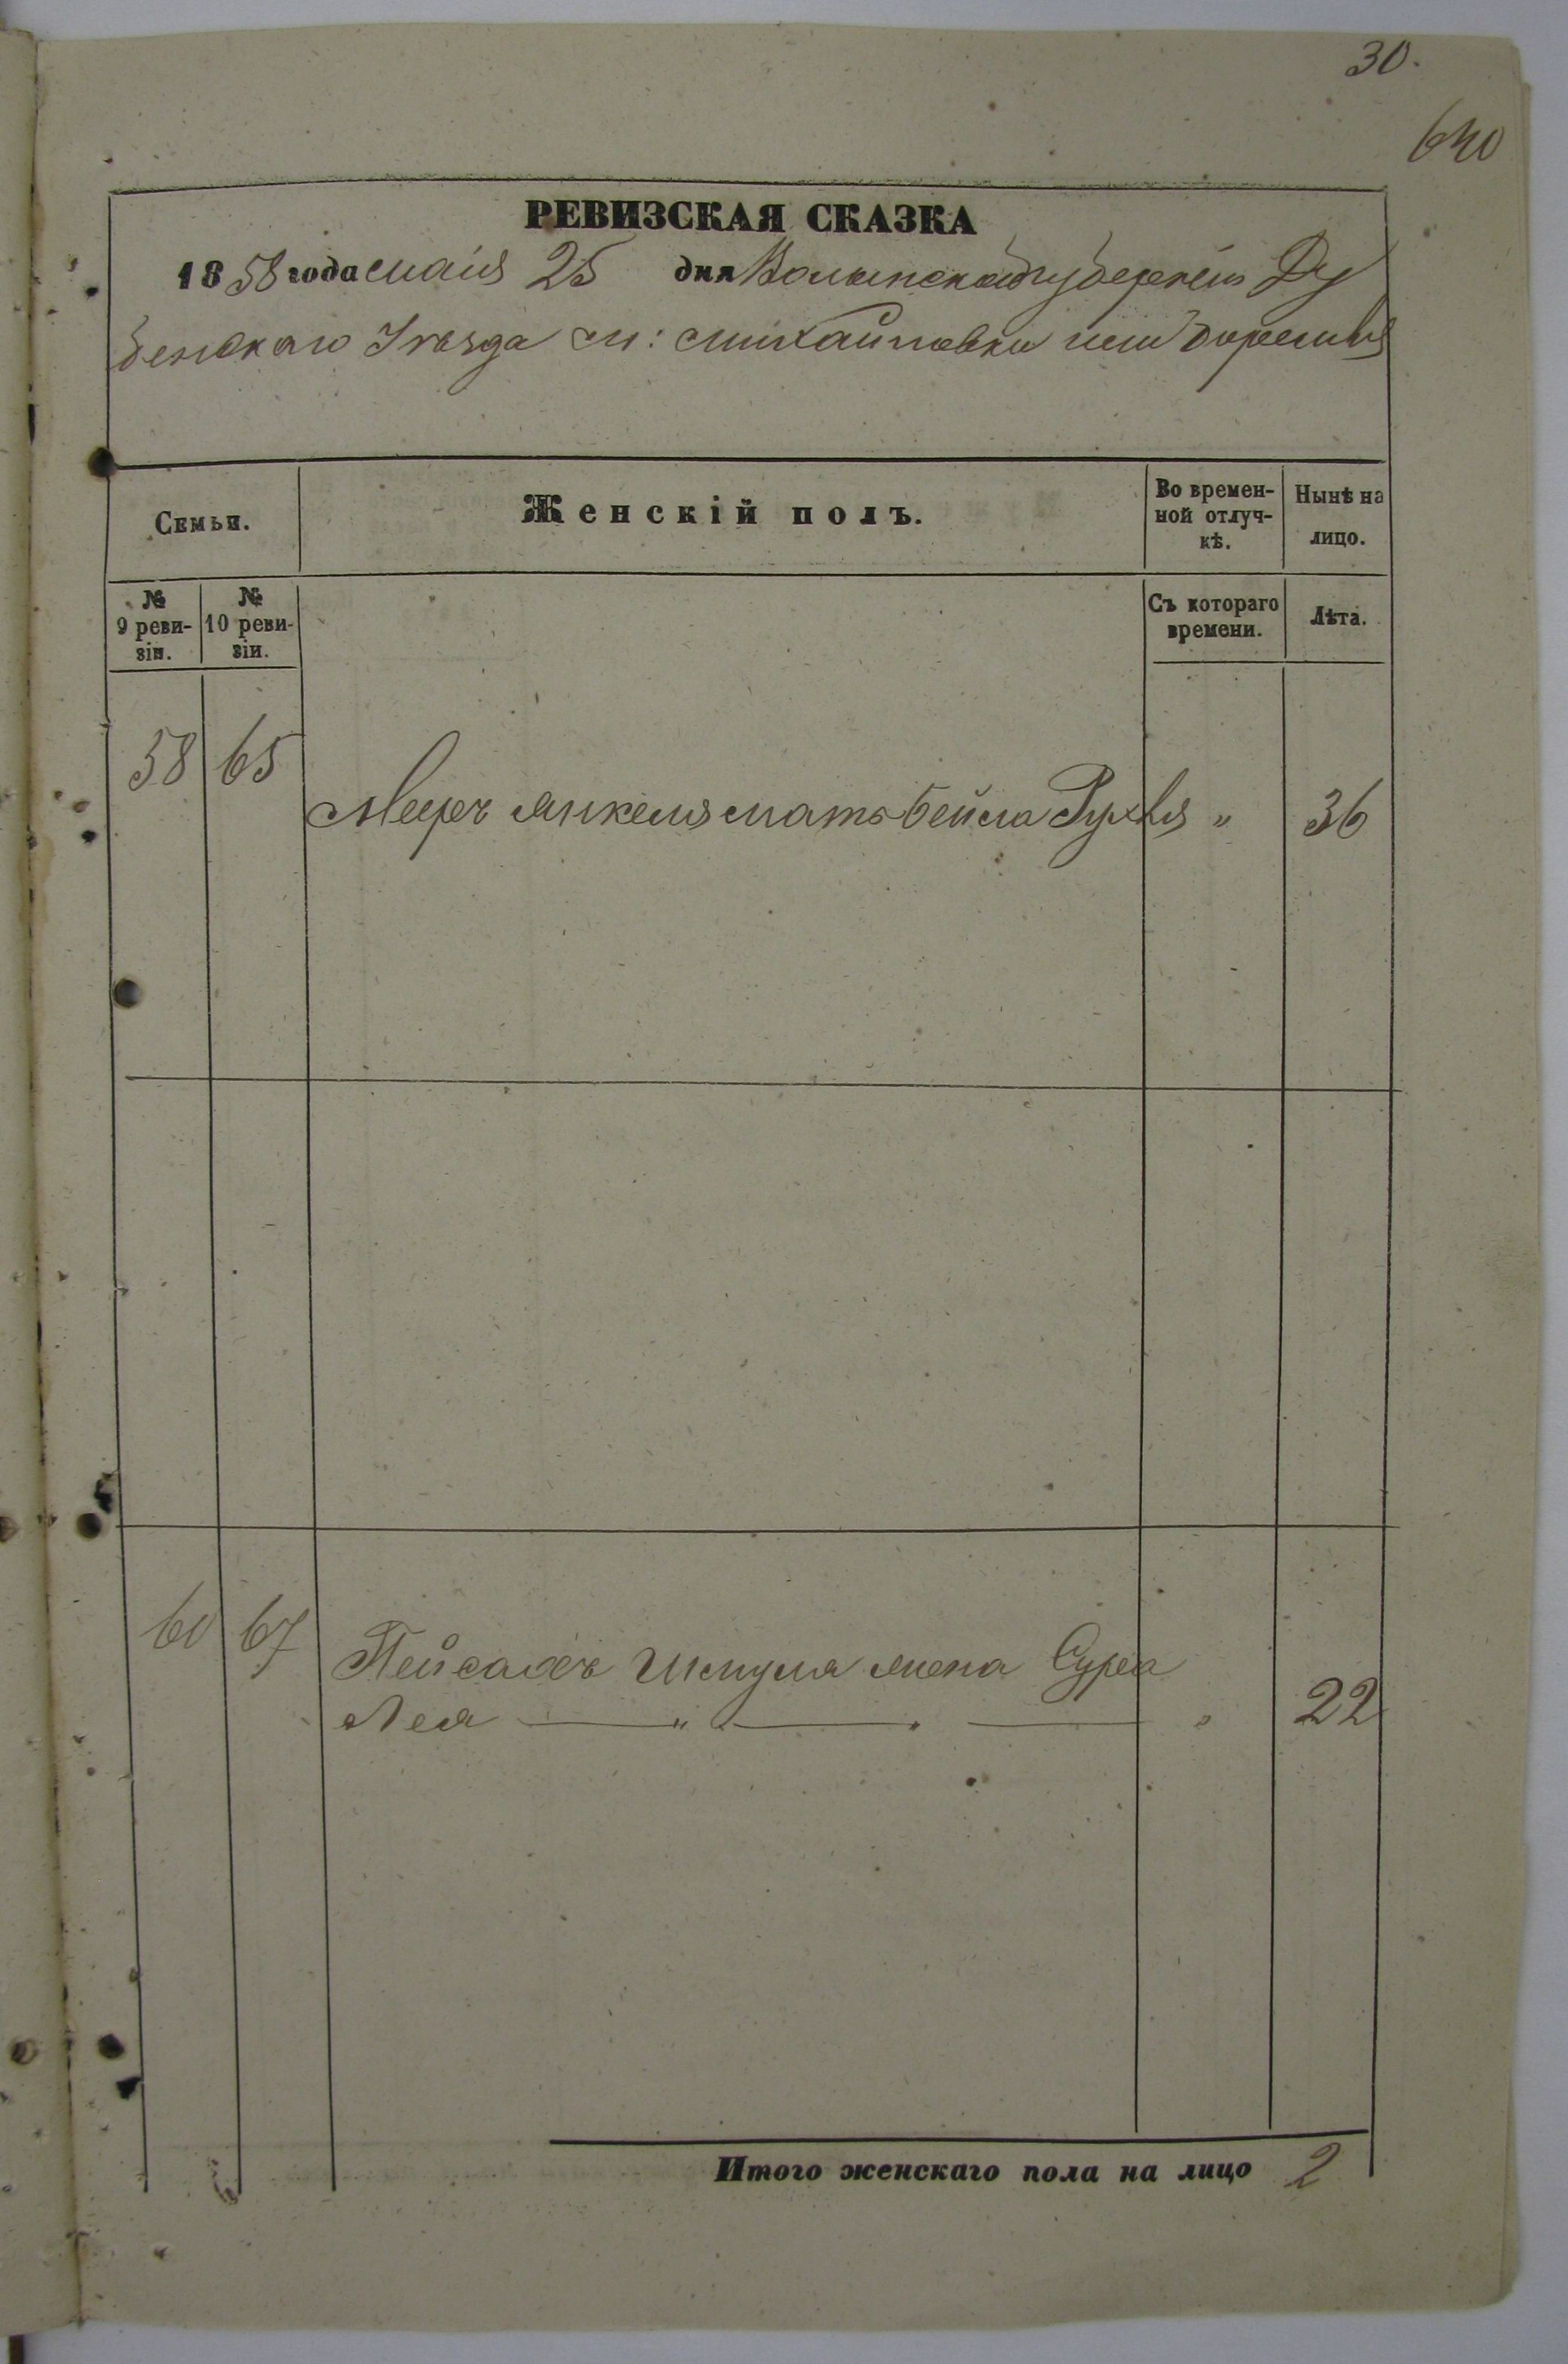 30.
640
РЕВИЗСКАЯ СКАЗКА
1858 года маія 25 дня Волынской губерніи Ду
бенскаго Уезда м: Михайловки или Боремля
Семьи.
Женскій полъ.
Во времен-
ной отлуч-
кѣ.
Нынѣ на
лицо.
№
9 реви-
зіи.
№
10 реви-
зіи.
Съ котораго
времени.
Лѣта.
58 65
Мееръ Янкеля мать Бейла Рухля " 36
60 67
Пейсахъ Шмуля жена Сура
Лея — " — " — " 22
Итого женскаго пола на лицо 2